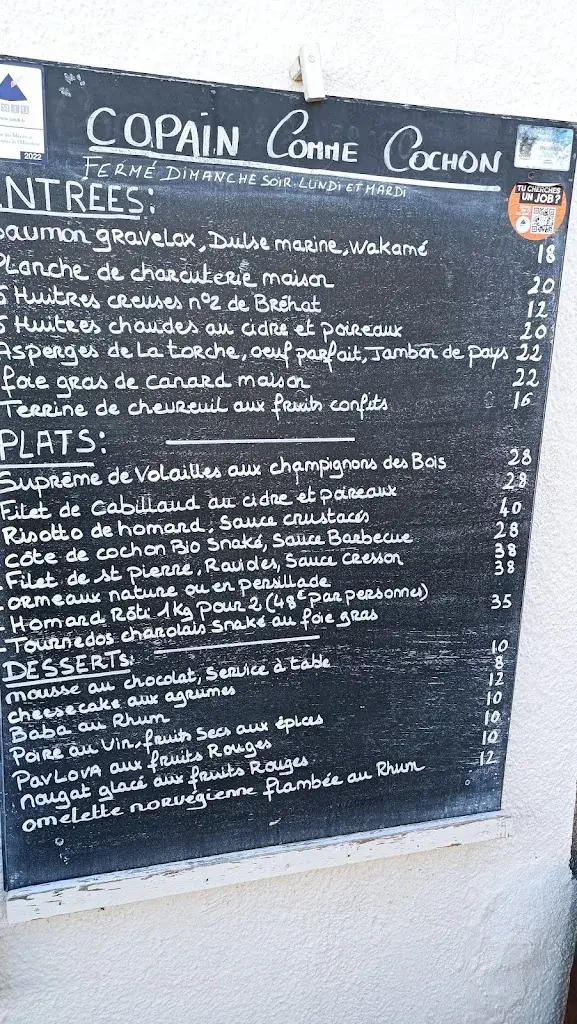 COPAIN COMME COCHON
FERMÉ DIMANCHE SOIR. LUNDI ET MARDI
TU CHERCHES
UN JOB ?
2022
ENTREES:
Saumon gravelax, Dulse marine, Wakamé 18
Planche de charcuterie maison 20
6 Huitres creuses n°2 de Bréhat 12
6 Huitres chaudes au cidre et poireaux 20
Asperges de La torche, oeuf parfait, Jambon de pays 22
foie gras de canard maison 22
Terrine de chevreuil aux fruits confits 16
PLATS:
Suprême de Volailles aux champignons des Bois 28
Filet de Cabillaud au cidre et poireaux 28
Risotto de homard, Sauce crustacés 40
Côte de cochon Bio Snaké, Sauce Barbecue 28
Filet de st pierre, Ravioles, Sauce Cresson 38
ormeaux nature ou en persillade 38
Homard Rôti 1kg pour 2 (48€ par personnes)
Tournedos charolais snaké au foie gras 35
DESSERTS:
mousse au chocolat, Service à table 10
cheesecake aux agrumes 8
Baba au Rhum 12
Poire au Vin, fruits Secs aux épices 10
PavLOVA aux fruits Rouges 10
nougat glacé aux fruits Rouges 10
omelette norvégienne flambée au Rhum 12